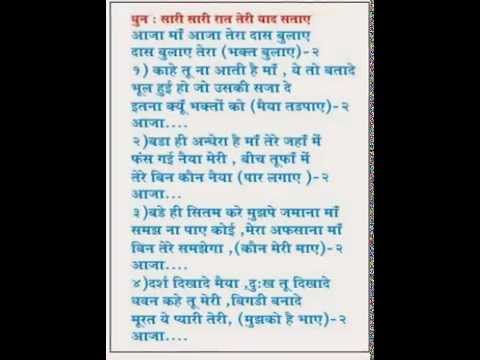 धुन : सारी सारी रात तेरी याद सताए
आजा माँ आजा तेरा दास बुलाए
दास बुलाए तेरा (भक्त बुलाए)-२
१) काहे तू ना आती है माँ , ये तो बतादे
भूल हुई हो जो उसकी सजा दे
इतना क्यूँ भक्तों को (मैया तडपाए)-२
आजा....
२)बडा ही अन्धेरा है माँ तेरे जहाँ में
फंस गई नैया मेरी , बीच तूफाँ में
तेरे बिन कौन नैया (पार लगाए )-२
आजा...
३)बडे ही सितम करे मुझपे जमाना माँ
समझ ना पाए कोई ,मेरा अफसाना माँ
बिन तेरे समझेगा ,(कौन मेरी माए)-२
आजा....
४)दर्श दिखादे मैया ,दुःख तू दिखादे
धवन कहे तू मेरी ,बिगडी बनादे
मूरत ये प्यारी तेरी, (मुझको है भाए)-२
आजा....